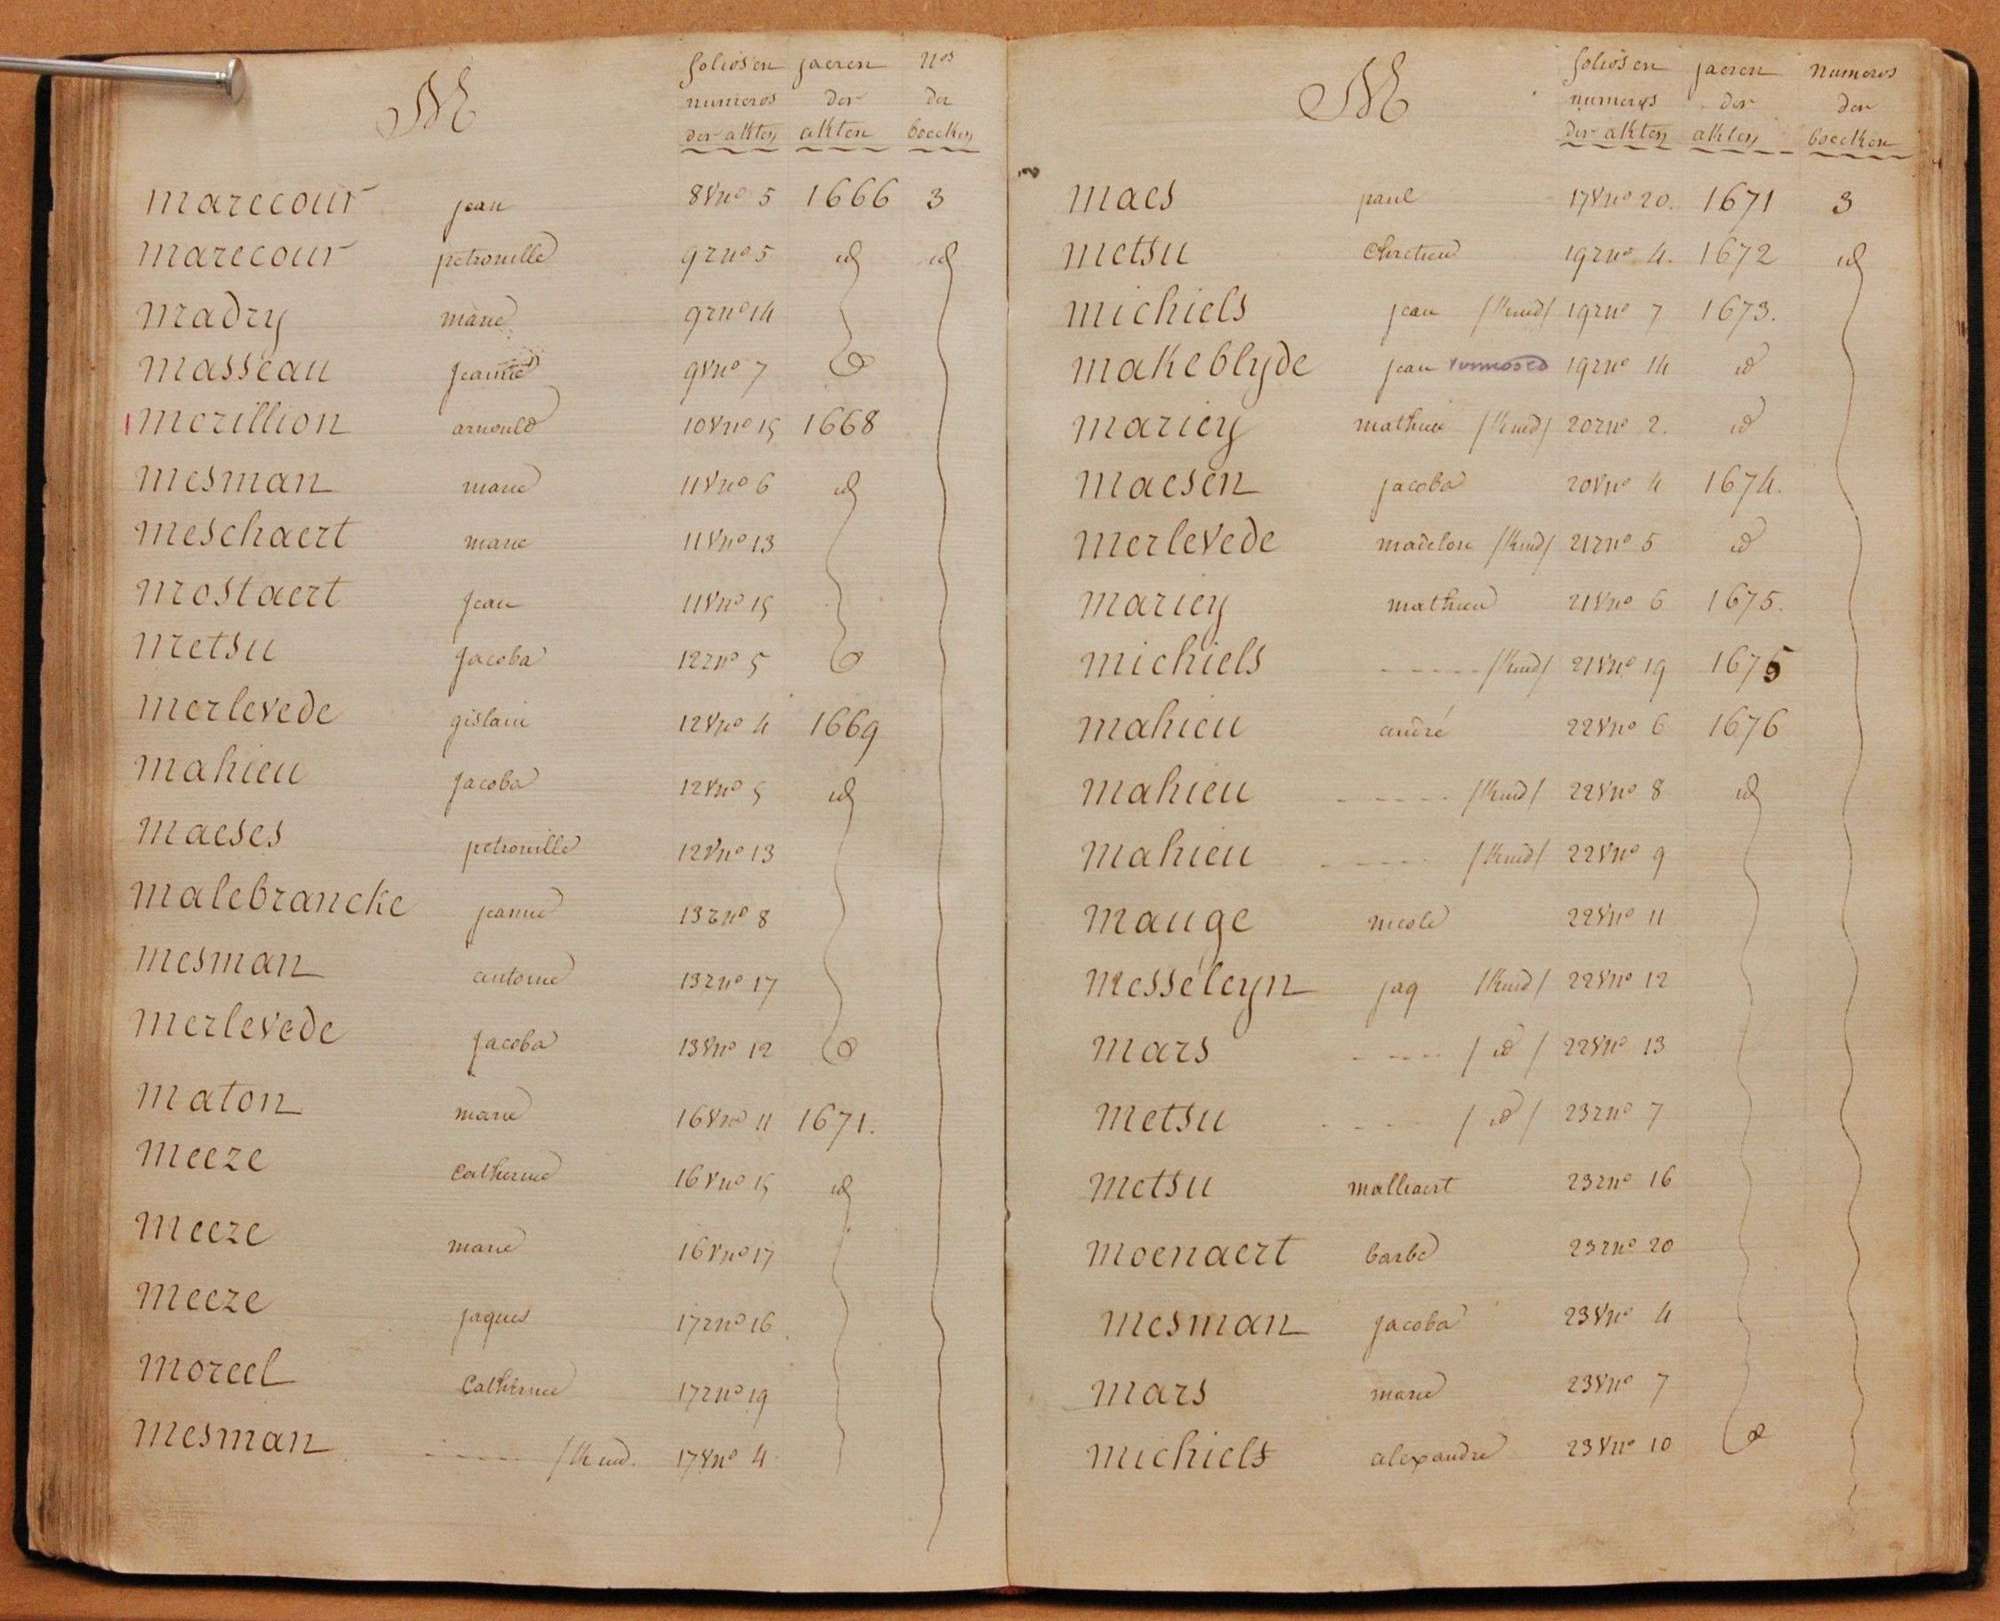 M
folios en jaeren Nos
numeros der der
der akten akten boecken
marecour jean 8 vno 5 1666 3
marecour petronille 9 rno 5 id id
madry marie 9 rno 14
masseau jeanne 9 vno 7
merillion arnould 10 vno 15 1668
mesman marie 11 vno 6 id
meschaert marie 11 vno 13
mostaert jean 11 vno 15
metsu jacoba 12 rno 5
merlevede gislain 12 vno 4 1669
mahieu jacoba 12 vno 5 id
maeses petronille 12 vno 13
malebrancke jeanne 13 rno 8
mesman antoine 13 rno 17
merlevede jacoba 13 vno 12
maton marie 16 vno 11 1671.
meeze Catherine 16 vno 15 id
meeze marie 16 vno 17
meeze jaques 17 rno 16
moreel Catherine 17 rno 19
mesman ----- /kind. 17 vno 4
M
folios en jaeren numeros
numeros der der
der akten akten boecken
maes paul 17 vno 20. 1671 3
metsu Chretien 19 rno 4. 1672 id
michiels jean /kind/ 19 rno 7 1673.
makeblyde jean 19 rno 14 id
mariey mathieu /kind/ 20 rno 2. id
maesen jacoba 20 vno 4 1674.
merlevede madelon /kind/ 21 rno 5 id
mariey mathieu 21 vno 6 1675.
michiels ----- /kind/ 21 vno 19 1675
mahieu andré 22 vno 6 1676
mahieu ----- /kind/ 22 vno 8 id
mahieu ----- /kind/ 22 vno 9
mauge nicole 22 vno 11
messéleyn jaq /kind/ 22 vno 12
mars ---- / id / 22 vno 13
metsu ---- / id / 23 rno 7
metsu malliaert 23 rno 16
moenaert barbe 23 rno 20
mesman jacoba 23 vno 4
mars marie 23 vno 7
michiels alexandre 23 vno 10